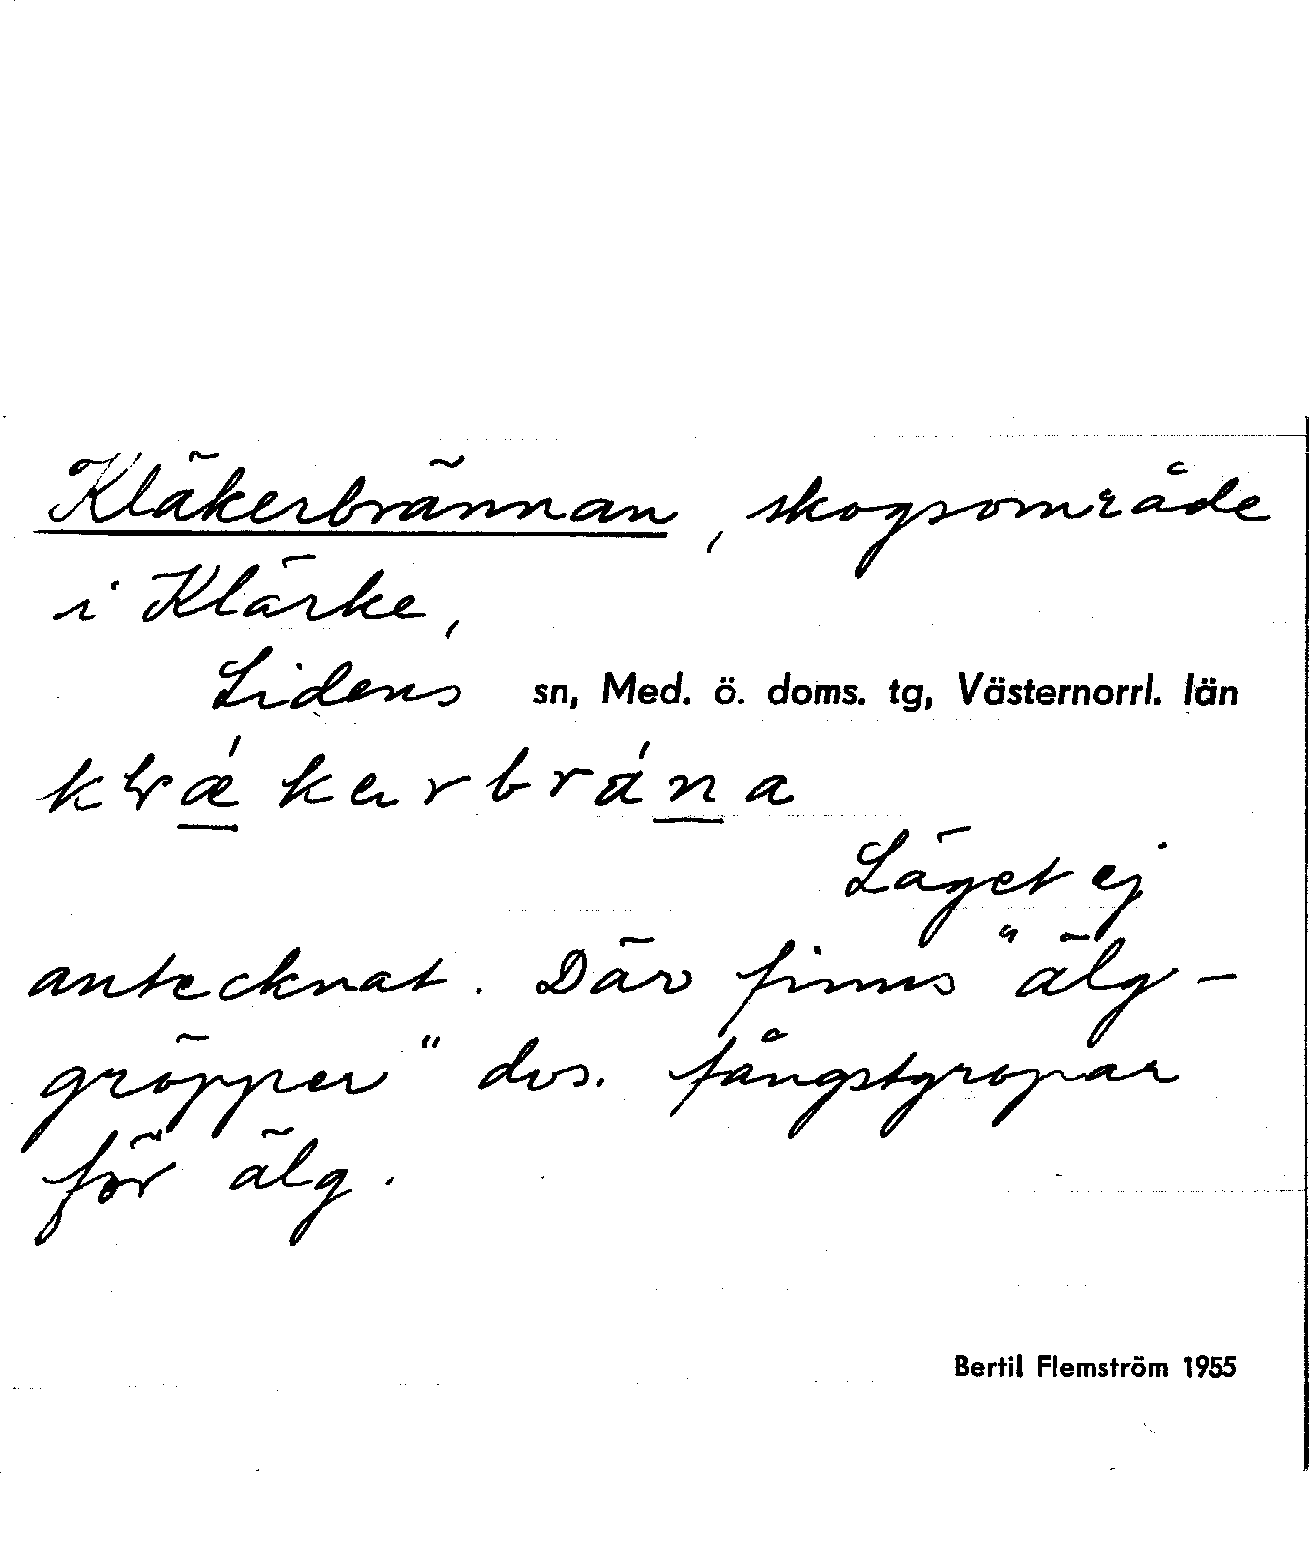 Kläkerbrännan, skogsområde
i Klärke,
Lidens sn, Med. ö. doms. tg, Västernorrl. län
Läget ej
antecknat. Där finns "älg-
gröpper" dvs. fångstgropar
för älg.
Bertil Flemström 1955